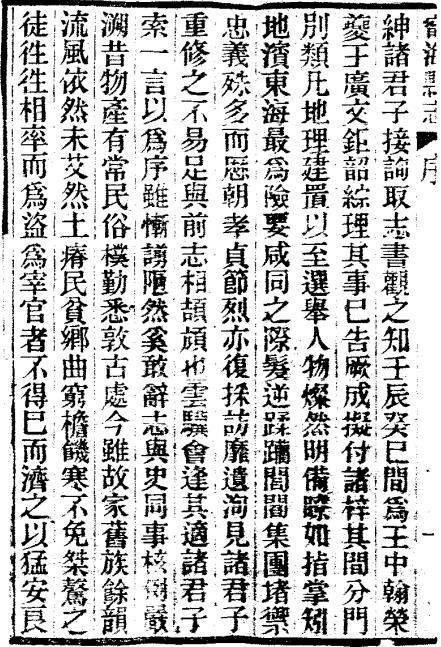 甯海縣志 序 一
紳諸君子接詢取志書觀之知壬辰癸巳間爲王中翰榮
夔王廣文鉅韶綜理其事已告厥成擬付諸梓其間分門
別類凡地理建置以至選舉人物燦然明備瞭如指掌矧
地濱東海最爲險要咸同之際髮逆蹂躪閭閻集團堵禦
忠義殊多而歷朝孝貞節烈亦復採訪靡遺洵見諸君子
重修之不易足與前志相頡頏也雲驥會逢其適諸君子
索一言以爲序雖慚謭陋然奚敢辭志與史同事核例嚴
溯昔物產有常民俗樸勤悉敦古處今雖故家舊族餘韻
流風依然未艾然土瘠民貧鄉曲窮檐饑寒不免桀驁之
徒往往相率而爲盜爲宰官者不得已而濟之以猛安良